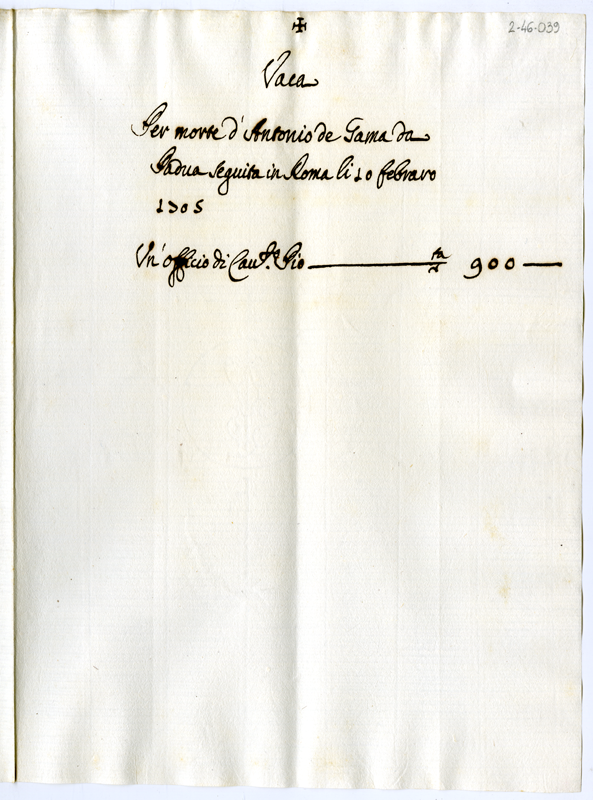 ✠
2-46-039
Vaca
Per morte d'Antonio de Gama da
Padua seguita in Roma li 10 febraro
1705
Un'officio di Cau.re Pio 900